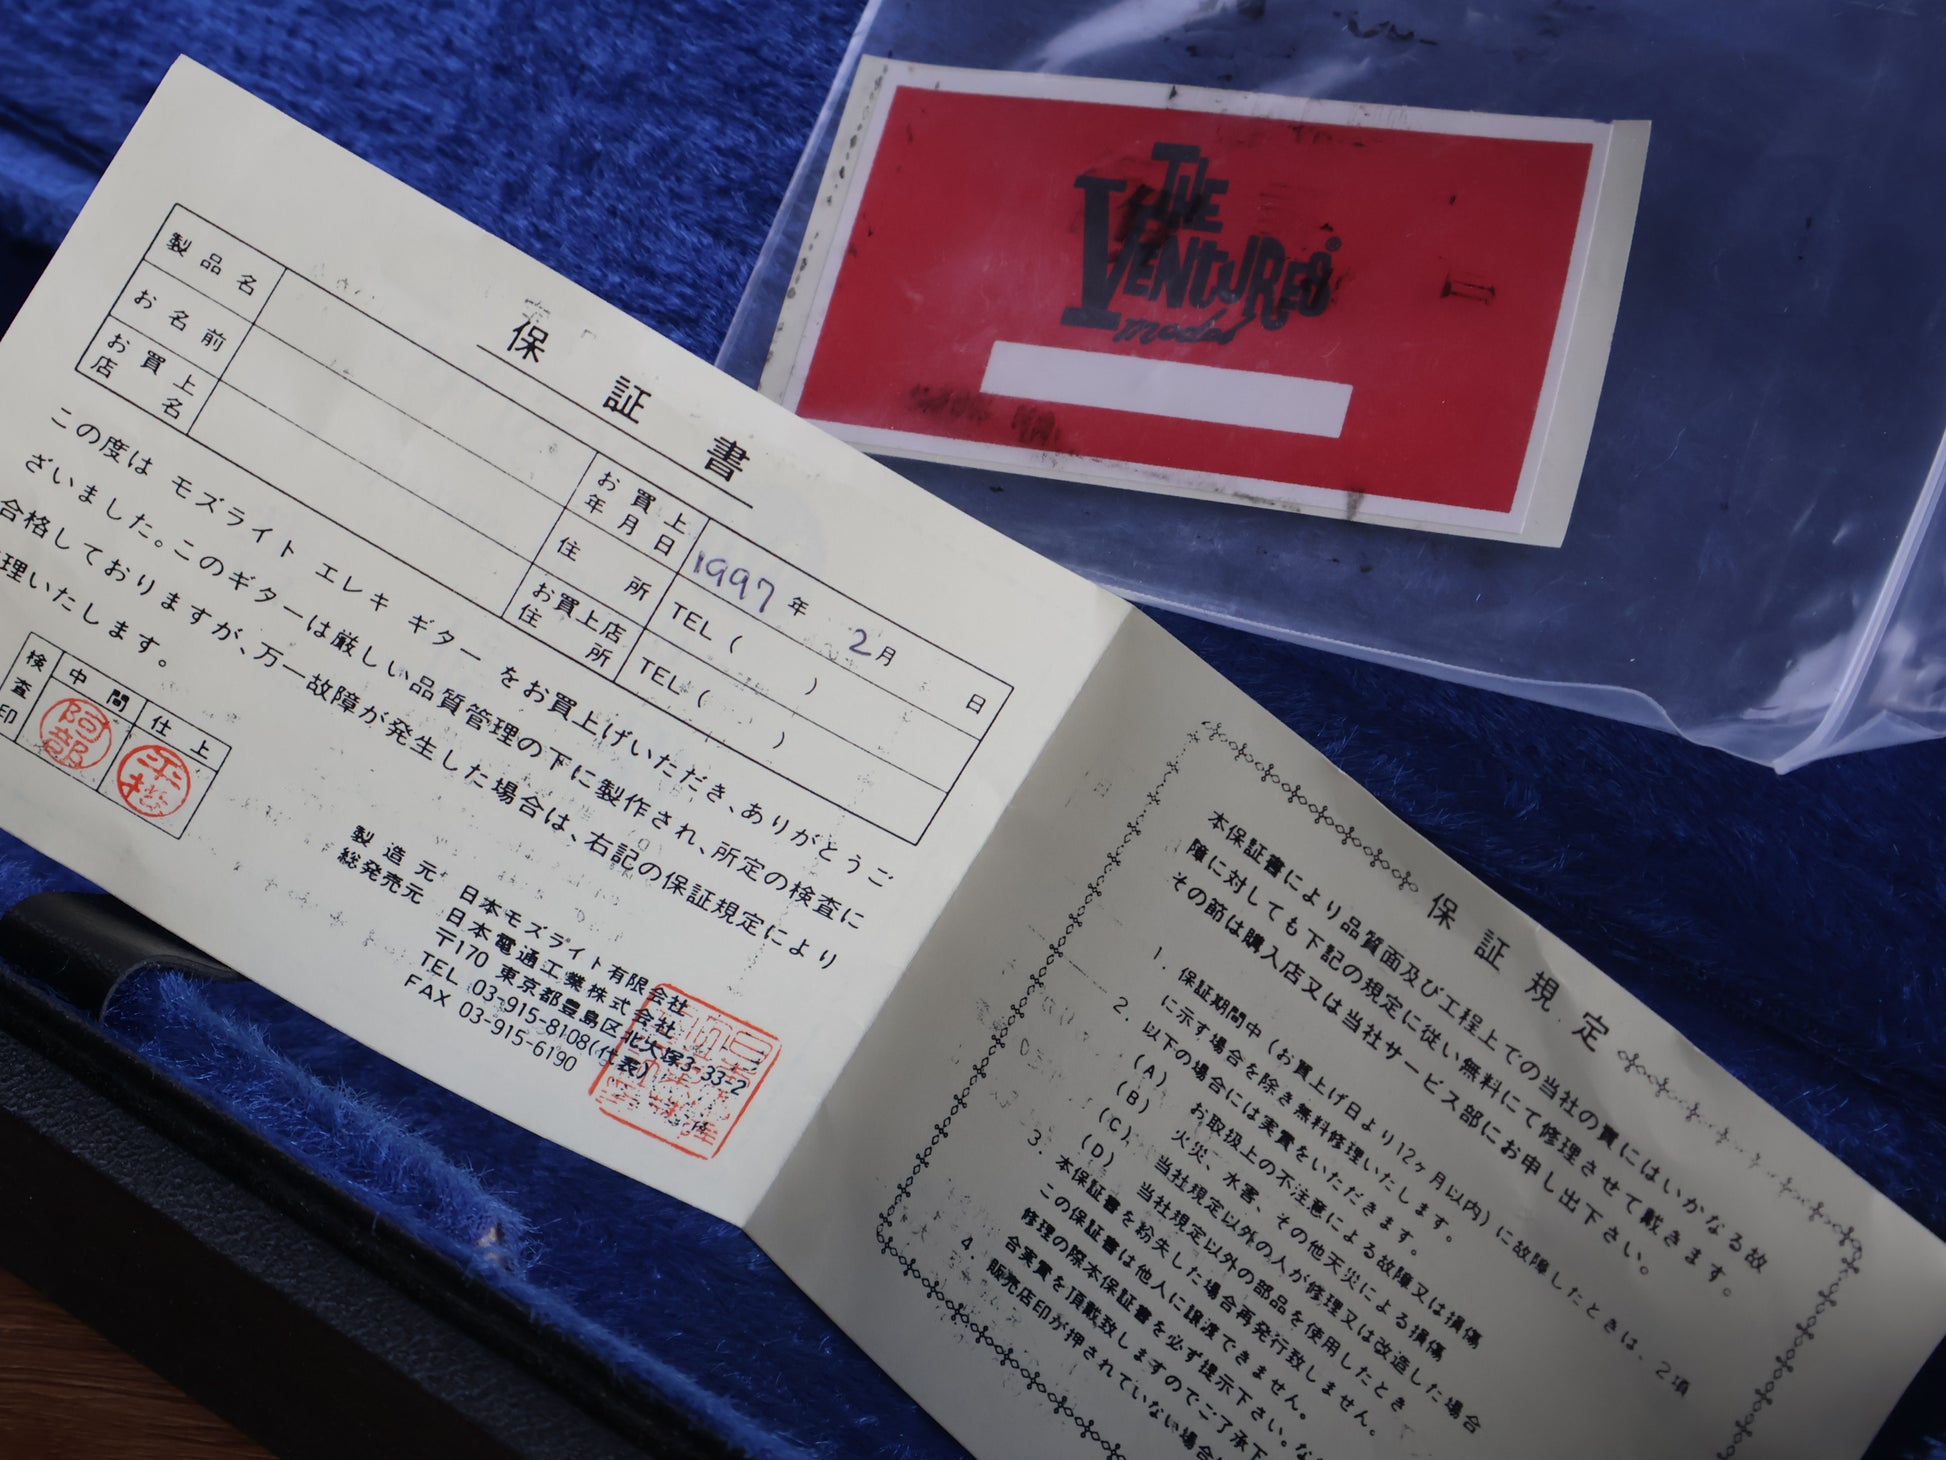 保証書
製品名
お名前
お買上店名
お買上年月日 1997年 2月 日
住所 TEL ( )
お買上店住所 TEL ( )
この度は モズライト エレキ ギター をお買上げいただき、ありがとうご
ざいました。このギターは厳しい品質管理の下に製作され、所定の検査に
合格しておりますが、万一故障が発生した場合は、右記の保証規定により
理いたします。
検査印 中間 仕上
阿部
製造元 日本モズライト有限会社
総発売元 日本電通工業株式会社
〒170 東京都豊島区北大塚3-33-2
TEL 03-915-8108(代表)
FAX 03-915-6190
THE
VENTURES®
model
保証規定
本保証書により品質面及び工程上での当社の責にはいかなる故
障に対しても下記の規定に従い無料にて修理させて戴きます。
その節は購入店又は当社サービス部にお申し出下さい。
1. 保証期間中(お買上げ日より12ヶ月以内)に故障したときは、2項
に示す場合を除き無料修理いたします。
2. 以下の場合には実費をいただきます。
(A) お取扱上の不注意による故障又は損傷
(B) 火災、水害、その他天災による損傷
(C) 当社規定以外の人が修理又は改造した場合
(D) 当社規定以外の部品を使用したとき
3. 本保証書を紛失した場合再発行致しません。
この保証書は他人に譲渡できません。
修理の際本保証書を必ず提示下さい。な
合実費を頂戴致しますのでご了承下
4. 販売店印が押されていない場合